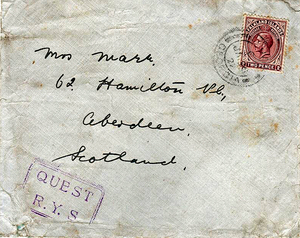 Mrs Marr.
62 Hamilton Pl,
Aberdeen,
Scotland.
QUEST
R.Y.S
TWO PENCE